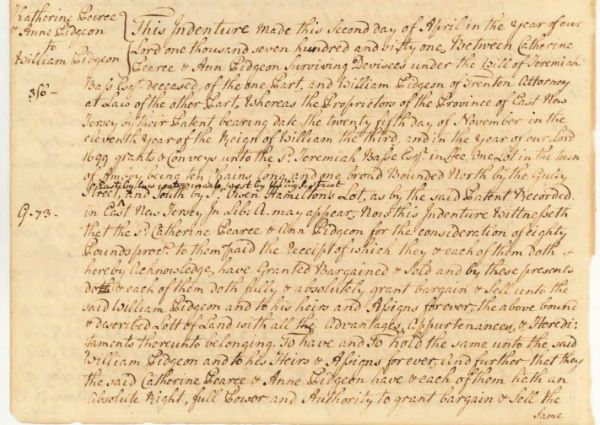 Katherine Peiree
& Anne Pidgeon
to
William Pidgeon
350 -
G. 73.
This Indenture made this second day of April in the year of our
Lord one thousand seven hundred and sixty one, Between Catherine
Pearce & Ann Pidgeon Surviving Devisees under the Will of Jeremiah
Bass Esqr. deceased, of the one Part, and William Pidgeon of Trenton Attorney
at Law of the other Part, Whereas the Proprietors of the Province of East New
Jersey in their Patent bearing date the twenty fifth day of November in the
eleventh Year of the Reign of William the third, and in the Year of our Lord
1699 grants & Conveys unto the Sd. Jeremiah Basse Esqr. in fee, One Lot in the town
of Amboy being ten Chains long and one broad Bounded North by the
East by low water mark, west by the high street
Street, and South by Owen Hamilton's Lot, as by the said Patent Recorded
in East New Jersey In Lib: A. may appear, Now this Indenture Wittnesseth
that the Sd. Catherine Pearce & Ann Pidgeon for the consideration of eighty
Pounds procr. to them paid the Receipt of which they & each of them doth
hereby Acknowledge, have Granted Bargained & Sold and by these presents
doth & each of them doth fully & absolutely, grant bargain & Sell unto the
said William Pidgeon and to his heirs and Assigns forever, the above bound
& described Lott of Land with all the Advantages, Appurtenances, & Heredi=
taments thereunto belonging. To have and To hold the same unto the said
William Pidgeon and to his Heirs & Assigns forever, And further that they
the said Catherine Pearce & Anne Pidgeon have & each of them hath an
absolute Right, full Power and Authority to grant bargain & Sell the
Same